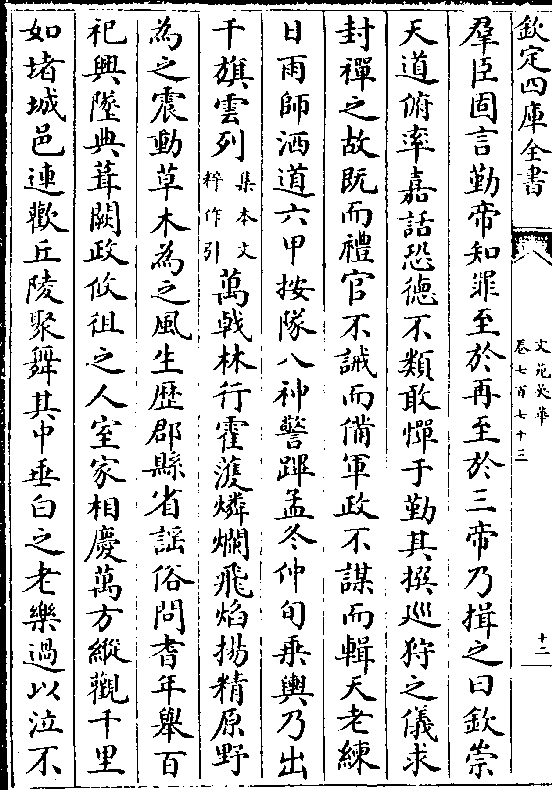 欽定四庫全書
文苑英華
卷七百七十三
十二
羣臣固言勤帝知罪至於再至於三帝乃揖之曰欽崇
天道俯率嘉話恐德不類敢憚于勤其撰巡狩之儀求
封禪之故既而禮官不誡而備軍政不謀而輯天老練
日雨師洒道六甲按隊八神警蹕孟冬仲旬乗輿乃出
千旗雲列集本文粹作引萬戟林行霍濩燐爛飛焰揚精原野
為之震動草木為之風生歴郡縣省謡俗問耆年舉百
祀興墜典葺闕政攸徂之人室家相慶萬方縱觀千里
如堵城邑連歡丘陵聚舞其中垂白之老樂過以泣不